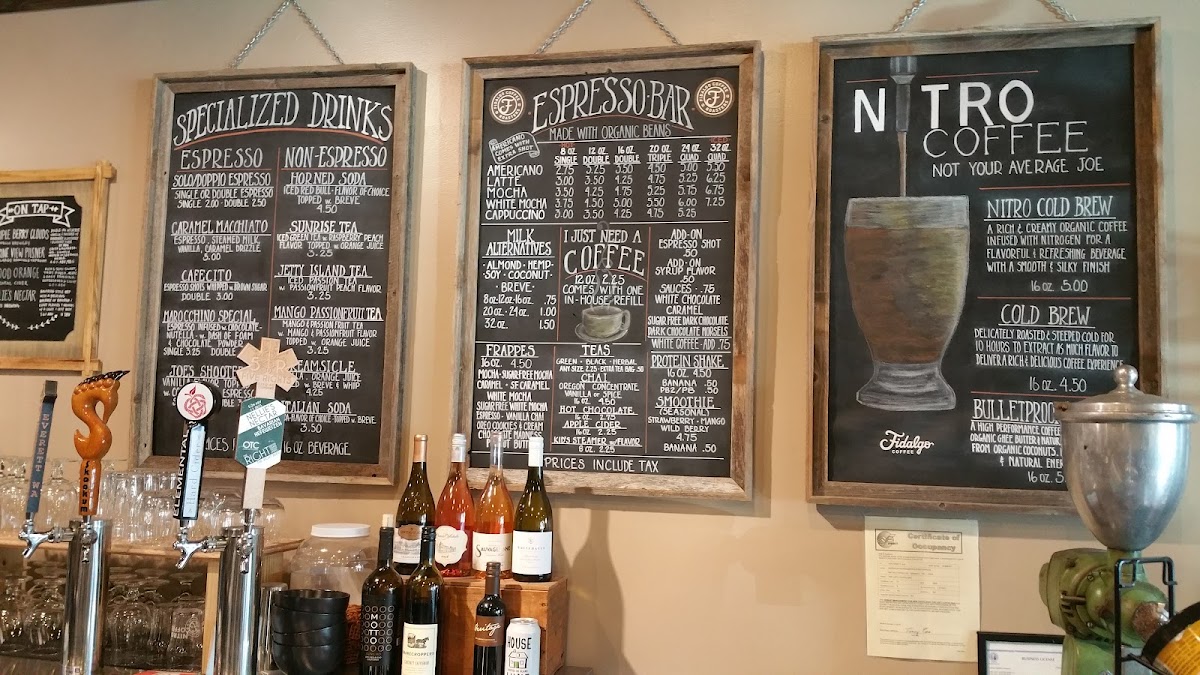 ON TAP
NECTAR
SPECIALIZED DRINKS
ESPRESSO
SOLO/DOPPIO ESPRESSO
SINGLE OR DOUBLE ESPRESSO
SINGLE 2.00 · DOUBLE 2.50
CARAMEL MACCHIATO
ESPRESSO, STEAMED MILK,
VANILLA, CARAMEL DRIZZLE
CAFECITO
ESPRESSO SHOTS WHIPPED w/ BROWN SUGAR
DOUBLE 3.00
MAROCCHINO SPECIAL
ESPRESSO INFUSED w/ CHOCOLATE
NUTELLA w. DASH OF FOAM
& CHOCOLATE POWDER
SINGLE 3.25 DOUBLE
JOE'S SHOOTE
NON-ESPRESSO
HORNED SODA
ICED RED BULL-FLAVOR OF CHOICE
TOPPED w. BREVE
4.50
SUNRISE TEA
ICED GREEN TEA w/ RASPBERRY PEACH
FLAVOR TOPPED w/ ORANGE JUICE
3.25
JETTY ISLAND TEA
ICED PASSION TEA
w/ PASSIONFRUIT PEACH FLAVOR
3.25
MANGO PASSIONFRUIT TEA
MANGO & PASSION FRUIT TEA
w/ MANGO & PASSIONFRUIT FLAVOR
TOPPED w/ ORANGE JUICE
3.25
AMSICLE
ORANGE JUICE
w/ BREVE & WHIP
4.25
ITALIAN SODA
FLAVOR OF CHOICE · TOPPED w/ BREVE
3.50
16 OZ BEVERAGE
ESPRESSO·BAR
MADE WITH ORGANIC BEANS
AMERICANO
COMES WITH
EXTRA SHOT
HOT
8 OZ 12 OZ 16 OZ 20 OZ 24 OZ 32 OZ
SINGLE DOUBLE DOUBLE TRIPLE QUAD QUAD
AMERICANO 2.75 3.25 3.50 4.50 5.00 5.50
LATTE 3.00 3.50 4.25 4.75 5.25 6.25
MOCHA 3.50 4.25 4.75 5.25 5.75 6.75
WHITE MOCHA 3.75 4.50 5.00 5.50 6.00 7.25
CAPPUCCINO 3.00 3.50 4.25 4.75 5.25
MILK
ALTERNATIVES
·ALMOND·HEMP·
·SOY·COCONUT·
·BREVE·
8 oz·12 oz·16 oz. .75
20 oz.·24 oz. 1.00
32 oz. 1.50
I JUST NEED A
COFFEE
12 OZ 2.25
COMES WITH ONE
IN-HOUSE REFILL
ADD-ON
ESPRESSO SHOT
.50
ADD-ON
SYRUP FLAVOR
.50
SAUCES · .75
WHITE CHOCOLATE
CARAMEL
SUGAR FREE DARK CHOCOLATE
DARK CHOCOLATE MORSELS
WHITE COFFEE-ADD .75
FRAPPES
16 OZ. 4.50
MOCHA·SUGAR FREE MOCHA
CARAMEL · SF CARAMEL
WHITE MOCHA
SUGAR FREE WHITE MOCHA
ESPRESSO · VANILLA CHAI
OREO COOKIES & CREAM
CHOCOLATE MADNESS
BUTTER
TEAS
GREEN · BLACK · HERBAL
ANY SIZE 2.25 · EXTRA TEA BAG .50
CHAI
OREGON CONCENTRATE
VANILLA or SPICE
16 OZ 4.50
HOT CHOCOLATE
16 OZ 2.75
APPLE CIDER
16 OZ 2.25
KID'S STEAMER w/ FLAVOR
8 OZ 2.25
PROTEIN SHAKE
16 OZ 4.50
BANANA .50
PB2/PPB .50
SMOOTHIE
(SEASONAL)
STRAWBERRY · MANGO
WILD BERRY
4.75
BANANA .50
PRICES INCLUDE TAX
NITRO
COFFEE
NOT YOUR AVERAGE JOE
NITRO COLD BREW
A RICH & CREAMY ORGANIC COFFEE
INFUSED WITH NITROGEN FOR A
FLAVORFUL & REFRESHING BEVERAGE
WITH A SMOOTH & SILKY FINISH
16 OZ. 5.00
COLD BREW
DELICATELY ROASTED & STEEPED COLD FOR
10 HOURS TO EXTRACT AS MUCH FLAVOR TO
DELIVER A RICH & DELICIOUS COFFEE EXPERIENCE
16 OZ. 4.50
BULLETPROO
A HIGH PERFORMANCE COFFEE
ORGANIC GHEE BUTTER & NATUR
FROM ORGANIC COCONUTS,
& NATURAL ENER
16 OZ. 5
Fidalgo
COFFEE
EVERETT WA
ELEMENTAL
Hard Cider
OTC
BIGHT
MOTTO
HOUSE
WINE
Certificate of
Occupancy